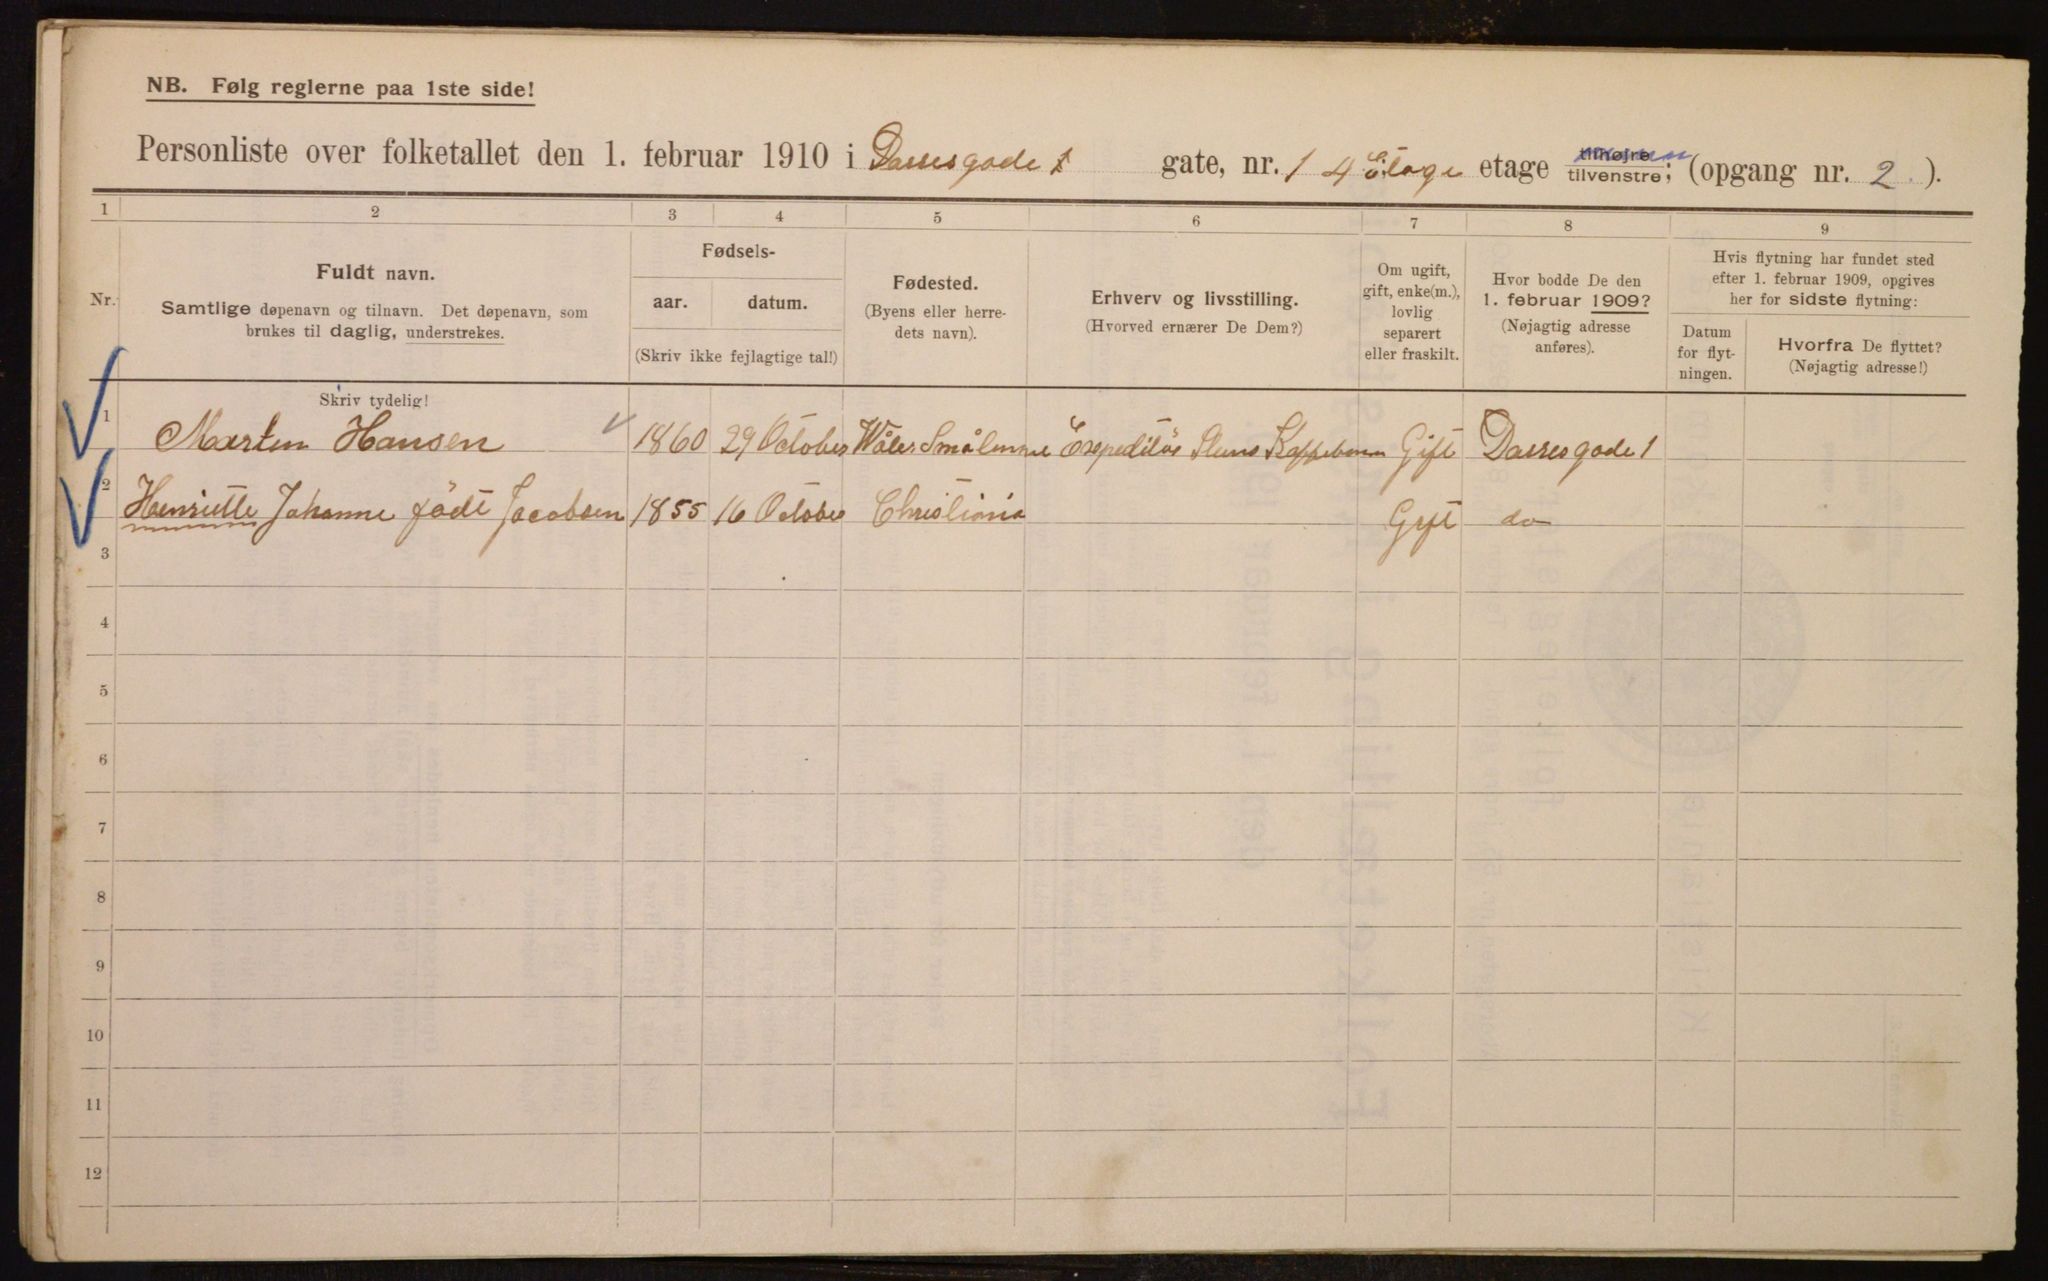 NB. Følg reglerne paa 1ste side!
Personliste over folketallet den 1. februar 1910 i Dassesgade 1 gate, nr. 1 4 Etage etage tilhøjre tilvenstre; (opgang nr. 2 ).
1 2 3 4 5 6 7 8 9
Nr.
Fuldt navn.
Samtlige døpenavn og tilnavn. Det døpenavn, som
brukes til daglig, understrekes.
Fødsels-
aar. datum.
(Skriv ikke fejlagtige tal!)
Fødested.
(Byens eller herre-
dets navn).
Erhverv og livsstilling.
(Hvorved ernærer De Dem?)
Om ugift,
gift, enke(m.),
lovlig
separert
eller fraskilt.
Hvor bodde De den
1. februar 1909?
(Nøjagtig adresse
anføres).
Hvis flytning har fundet sted
efter 1. februar 1909, opgives
her for sidste flytning:
Datum
for flyt-
ningen.
Hvorfra De flyttet?
(Nøjagtig adresse!)
Skriv tydelig!
1 Marten Hansen 1860 29 October Wåler Smålenne Expeditör Gift Dassesgade 1
2 Henriette Johanne födt Jacobsen 1855 16 October Christiania Gift do
3
4
5
6
7
8
9
10
11
12